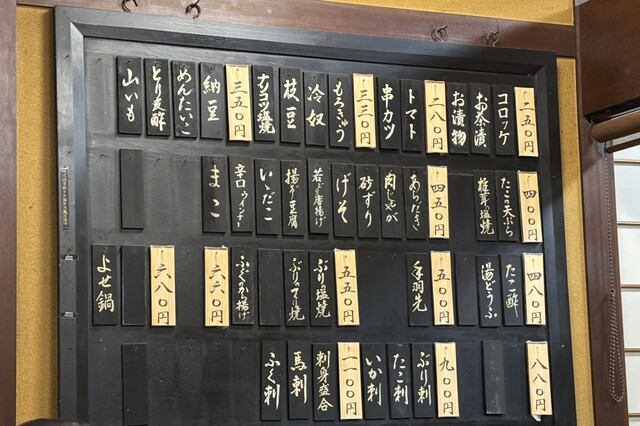 二五〇円
コロッケ
お茶漬
お漬物
二八〇円
トマト
串カツ
三三〇円
もろきゅう
冷奴
枝豆
ナンコツ塩焼
三五〇円
納豆
めんたいこ
とり皮酢
山いも
四〇〇円
たこの天ぷら
椎茸塩焼
四五〇円
あらだき
肉じゃが
砂ずり
げそ
若どり唐揚げ
揚げ出し豆腐
いいだこ
辛口ウインナー
まこ
四八〇円
たこ酢
湯どうふ
五〇〇円
手羽先
五五〇円
ぶり塩焼
ぶりのてり焼
ふぐから揚げ
六六〇円
六八〇円
よせ鍋
八八〇円
九〇〇円
ぶり刺
たこ刺
いか刺
一一〇〇円
刺身盛合
馬刺
ふぐ刺